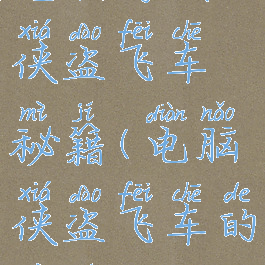 xiá dào fēi chē
侠盗飞车
mì jí diàn nǎo
秘籍(电脑
xiá dào fēi chē de
侠盗飞车的